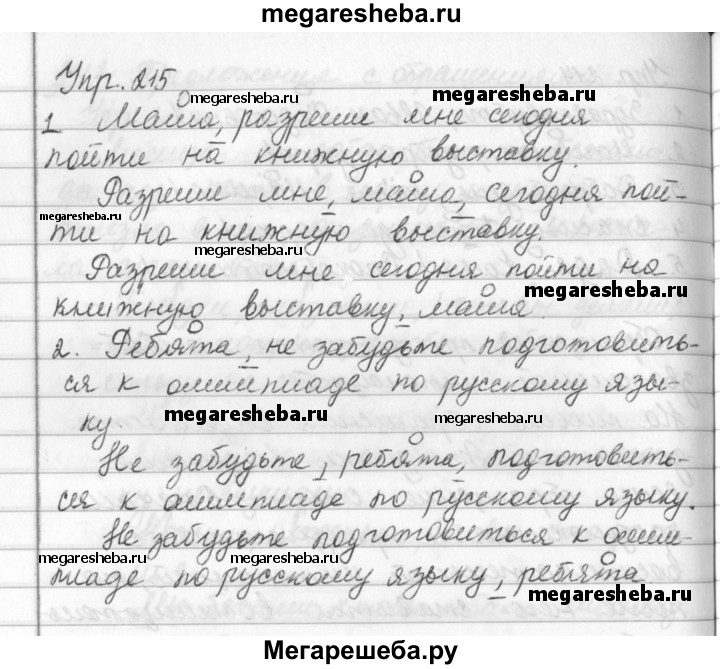 megaresheba.ru
Упр. 215
megaresheba.ru megaresheba.ru
1 Маша, разреши мне сегодня
пойти на книжную выставку.
Разреши мне, маша, сегодня пой-
megaresheba.ru
ти на книжную выставку.
megaresheba.ru
Разреши мне сегодня пойти на
megaresheba.ru
книжную выставку, маша
2. Ребята, не забудьте подготовить-
ся к олимпиаде по русскому язы-
megaresheba.ru megaresheba.ru
ку.
Не забудьте, ребята, подготовить-
ся к олимпиаде по русскому языку.
Не забудьте подготовиться к олим-
megaresheba.ru megaresheba.ru
пиаде по русскому языку, ребята
megaresheba.ru
Мегарешеба.ру